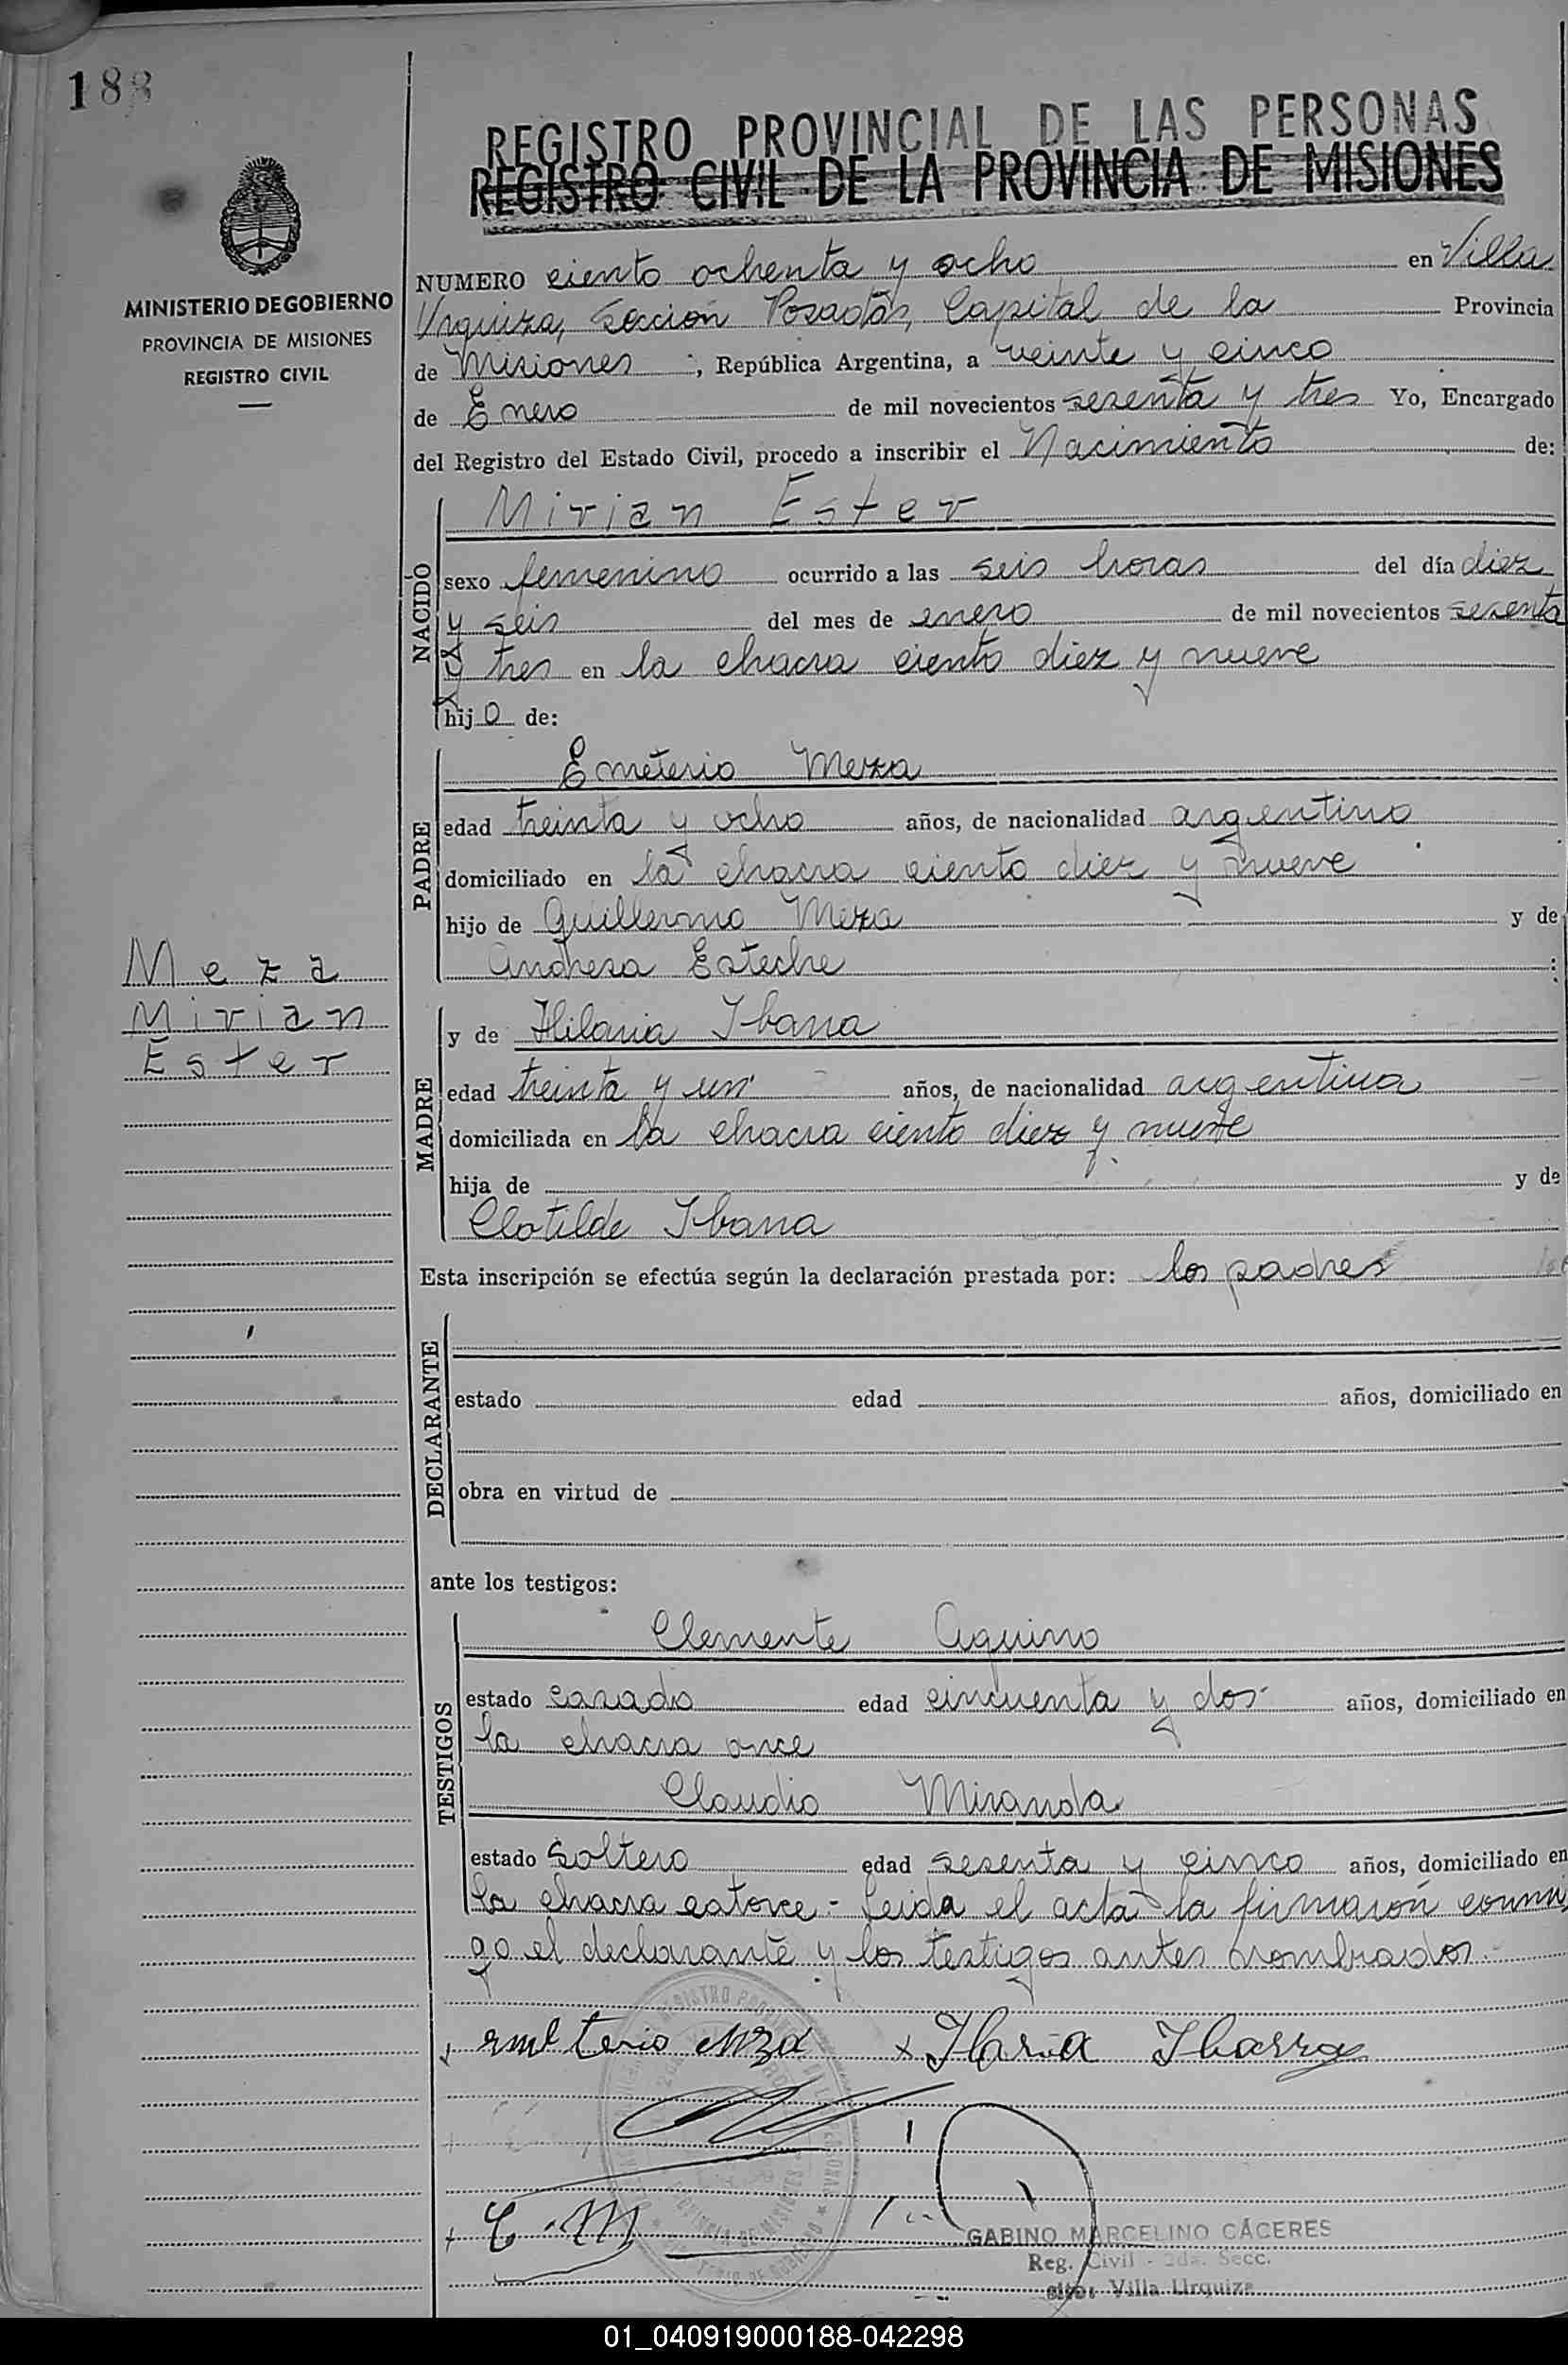 188
REGISTRO PROVINCIAL DE LAS PERSONAS
REGISTRO CIVIL DE LA PROVINCIA DE MISIONES
MINISTERIO DE GOBIERNO
PROVINCIA DE MISIONES
REGISTRO CIVIL
NUMERO ciento ochenta y ocho en Villa
Urquiza, Sección Posadas, Capital de la Provincia
de Misiones ; República Argentina, a veinte y cinco
de Enero de mil novecientos sesenta y tres Yo, Encargado
del Registro del Estado Civil, procedo a inscribir el Nacimiento de:
NACIDO
Mirian Ester
sexo femenino ocurrido a las seis horas del día diez
y seis del mes de enero de mil novecientos sesenta
y tres en la chacra ciento diez y nueve
hijo de:
PADRE
Emeterio Meza
edad treinta y ocho años, de nacionalidad argentino
domiciliado en la chacra ciento diez y nueve
hijo de Guillermo Meza y de
Andresa Esteche :
Meza
Mirian
Ester
MADRE
y de Hilaria Ibarra
edad treinta y un años, de nacionalidad argentina
domiciliada en la chacra ciento diez y nueve
hija de y de
Clotilde Ibarra
Esta inscripción se efectúa según la declaración prestada por: los padres
DECLARANTE
estado edad años, domiciliado en
obra en virtud de
ante los testigos:
TESTIGOS
Clemente Aquino
estado casado edad cincuenta y dos años, domiciliado en
la chacra once
Claudio Miranda
estado Soltero edad sesenta y cinco años, domiciliado en
la chacra catorce - Leida el acta la firmarón conmi
go el declarante y los testigos antes nombrados.-
Ilaria Ibarra
C. M
GABINO MARCELINO CÁCERES
Reg. Civil - 2da. Secc.
Villa Urquiza
01_040919000188-042298